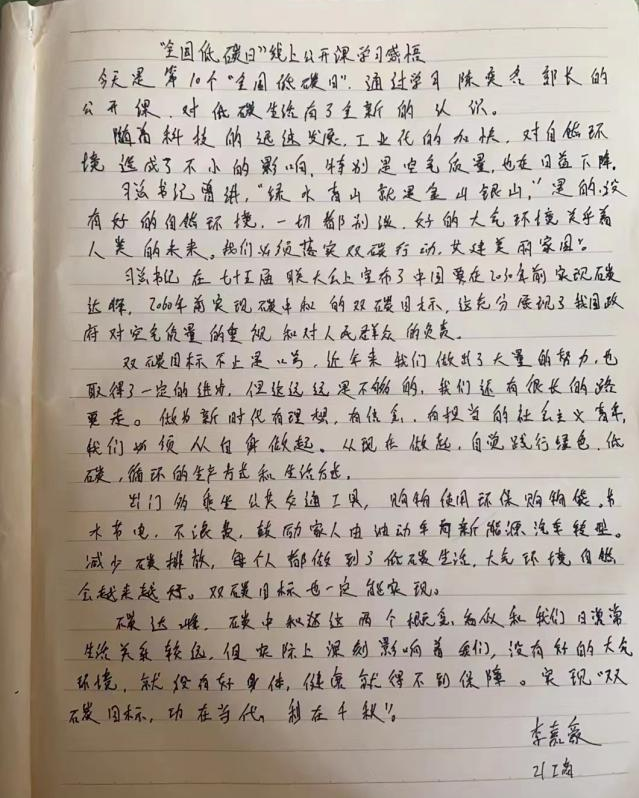 “全国低碳日”线上公开课学习感悟
今天是第10个“全国低碳日”，通过学习陈奕名部长的
公开课，对低碳生活有了全新的认识。
随着科技的迅速发展，工业化的加快，对自然环
境造成了不小的影响，特别是空气质量，也在日益下降。
习总书记曾讲，“绿水青山就是金山银山，”是的，没
有好的自然环境，一切都别谈，好的大气环境关乎着
人类的未来。我们必须落实双碳行动，共建美丽家园”。
习总书记在七十五届联大会上宣布了中国要在2030年前实现碳
达峰，2060年前实现碳中和的双碳目标，这充分展现了我国政
府对空气质量的重视和对人民群众的负责。
双碳目标不止是口号，近年来我们做出了大量的努力，也
取得了一定的进步，但这远远是不够的，我们还有很长的路
要走。做为新时代有理想，有信念，有担当的社会主义青年，
我们必须从自身做起。从现在做起，自觉践行绿色，低
碳，循环的生产方式和生活方式。
出门多乘坐公共交通工具，购物使用环保购物袋。节
水节电，不浪费，鼓励家人由油动车向新能源汽车转型。
减少碳排放，每个人都做到了低碳生活，大气环境自然
会越来越好。双碳目标也一定能实现。
碳达峰，碳中和这两个概念，看似和我们日常
生活关系较远，但实际上深刻影响着我们，没有好的大气
环境，就没有好身体，健康就得不到保障。实现“双
碳目标，功在当代，利在千秋”。
李嘉豪